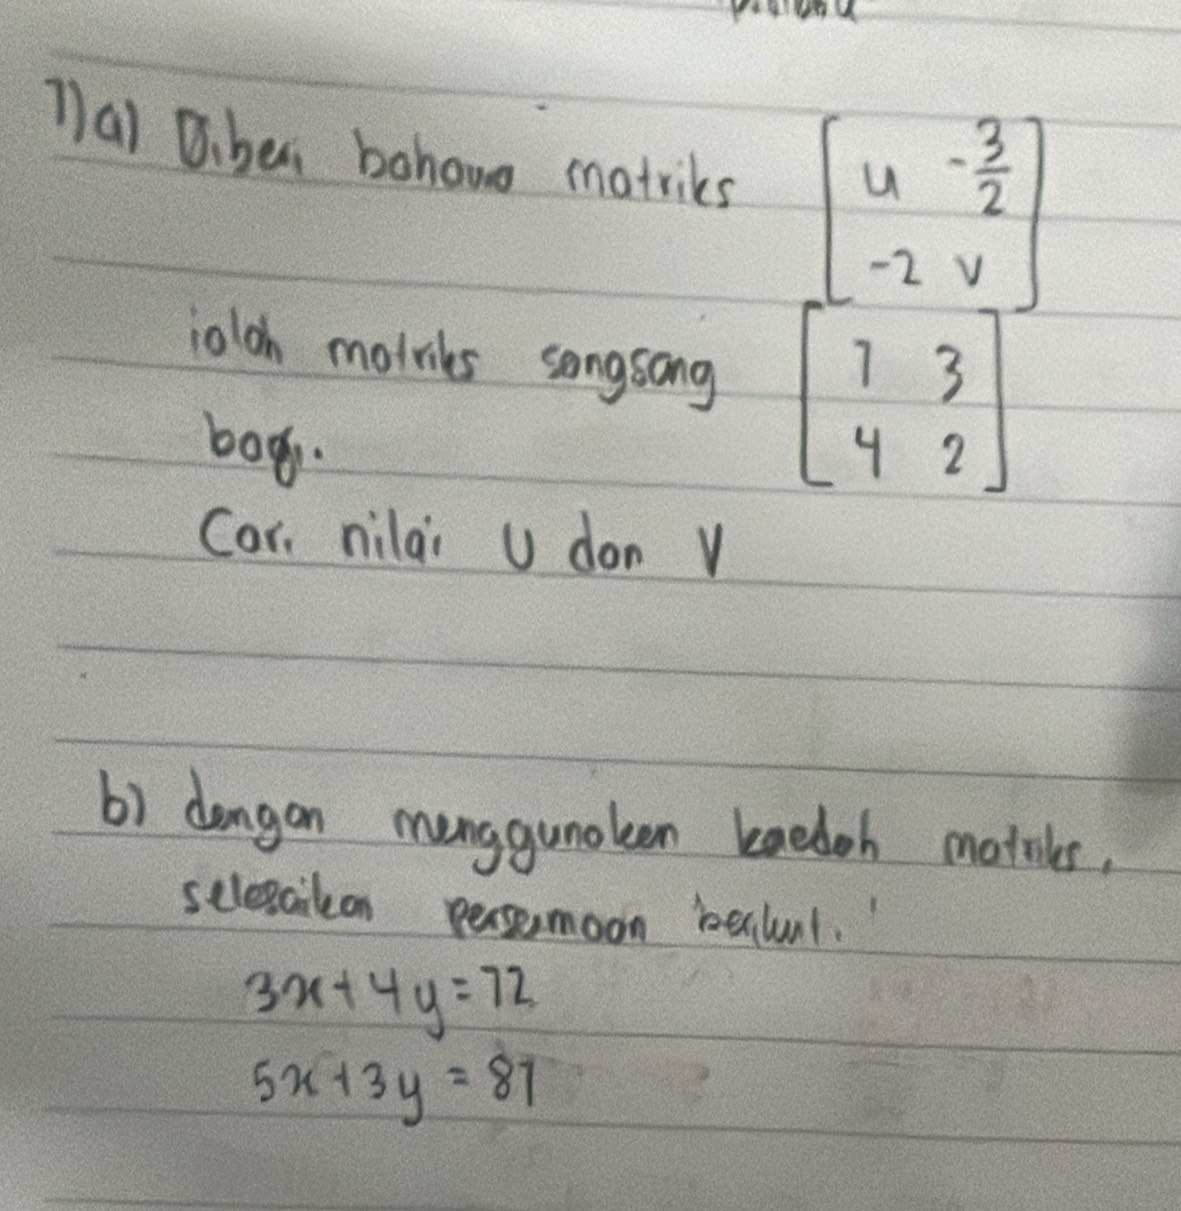 7)a) Diberi bahawa matriks [u -3/2
-2 v]
ialah matriks songsang [7 3
bagi. 4 2]
Cari nilai U dan V
b) dengan menggunakan kaedah matriks,
selesaikan persamaan berikut.
3x+4y=72
5x+3y=87